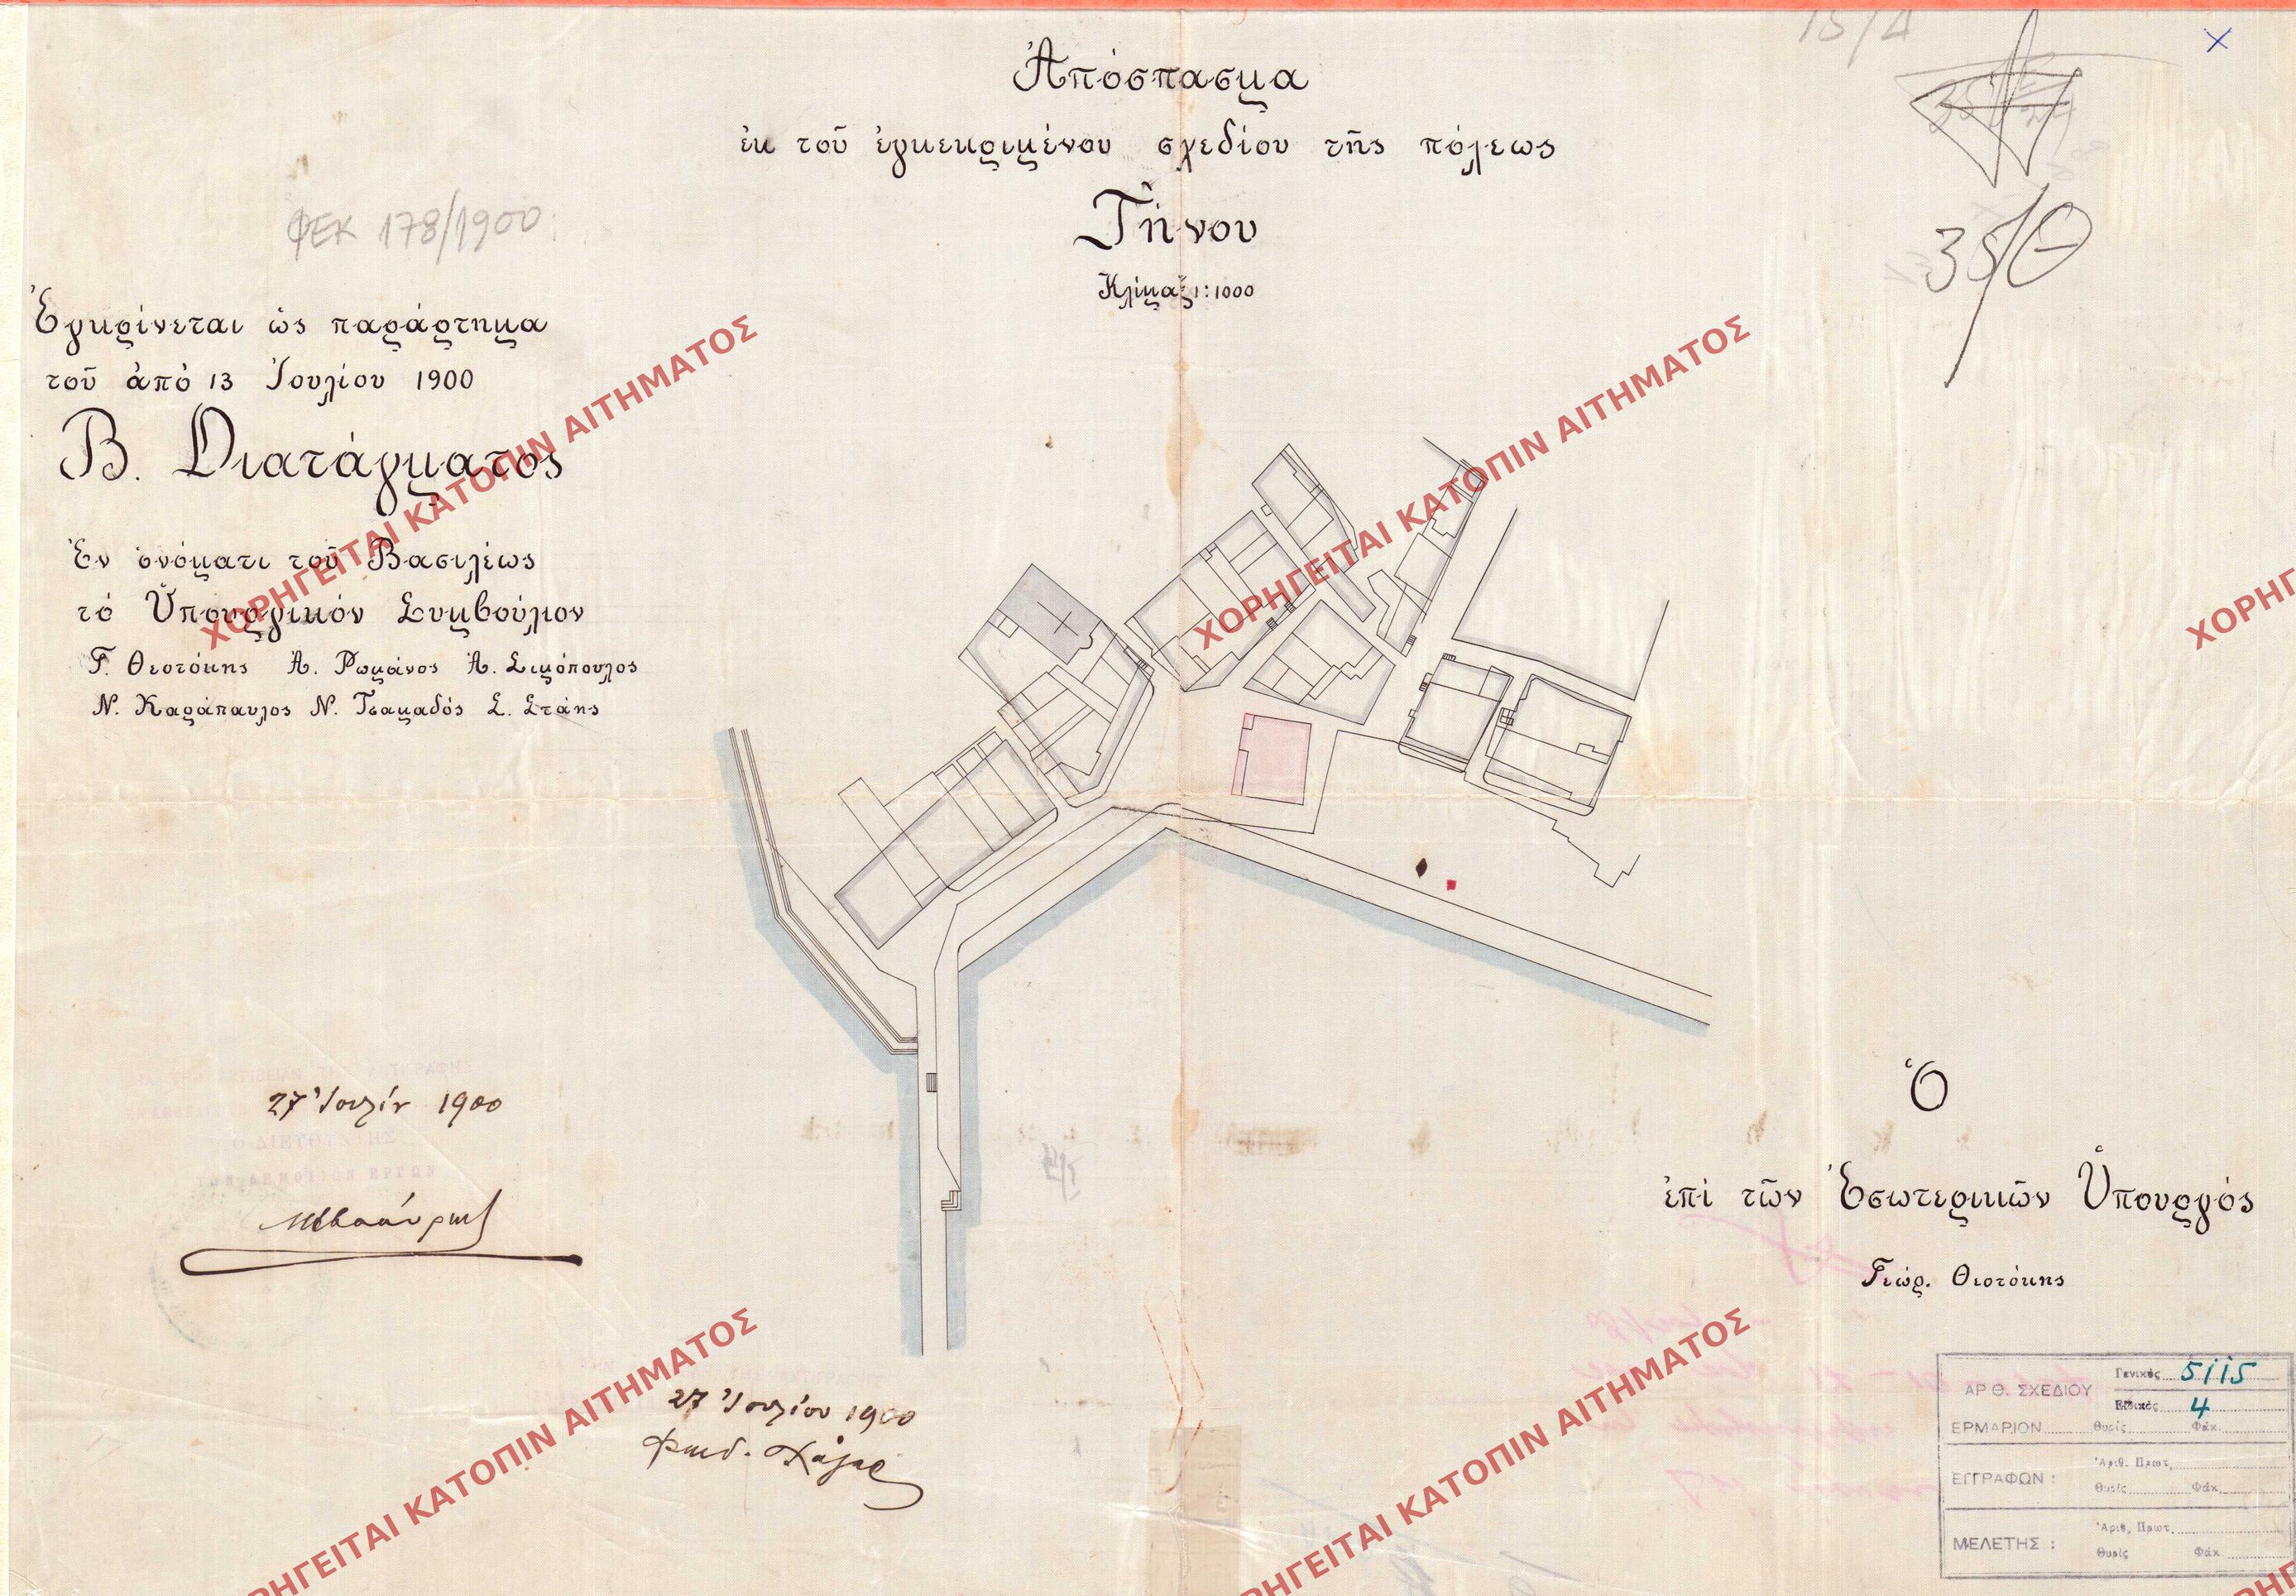 Ἀπόσπασμα
ἐκ τοῦ ἐγκεκριμένου σχεδίου τῆς πόλεως
Τήνου
Κλίμαξ 1:1000
ΦΕΚ 178/1900
35/Θ
Ἐγκρίνεται ὡς παράρτημα
τοῦ ἀπὸ 13 Ἰουλίου 1900
Β. Διατάγματος
Ἐν ὀνόματι τοῦ Βασιλέως
τὸ Ὑπουργικόν Συμβούλιον
Γ. Θεοτόκης Ἀ. Ρωμάνος Ἀ. Σιμόπουλος
Ν. Καράπαυλος Ν. Τσαμαδός Σ. Στάης
27 Ἰουλίου 1900
27 Ἰουλίου 1900
Ὁ
ἐπί τῶν Ἐσωτερικῶν Ὑπουργός
Γεώρ. Θεοτόκης
ΑΡΙΘ. ΣΧΕΔΙΟΥ Γενικός 5115
Εἰδικός 4
ΕΡΜΑΡΙΟΝ Θυρίς Φάκ.
ΕΓΓΡΑΦΩΝ : Ἀριθ. Πρωτ.
Θυρίς Φάκ.
ΜΕΛΕΤΗΣ : Ἀριθ. Πρωτ.
Θυρίς Φάκ.
ΧΟΡΗΓΕΙΤΑΙ ΚΑΤΟΠΙΝ ΑΙΤΗΜΑΤΟΣ
ΧΟΡΗΓΕΙΤΑΙ ΚΑΤΟΠΙΝ ΑΙΤΗΜΑΤΟΣ
ΧΟΡΗΓ
ΡΗΓΕΙΤΑΙ ΚΑΤΟΠΙΝ ΑΙΤΗΜΑΤΟΣ
ΟΡΗΓΕΙΤΑΙ ΚΑΤΟΠΙΝ ΑΙΤΗΜΑΤΟΣ